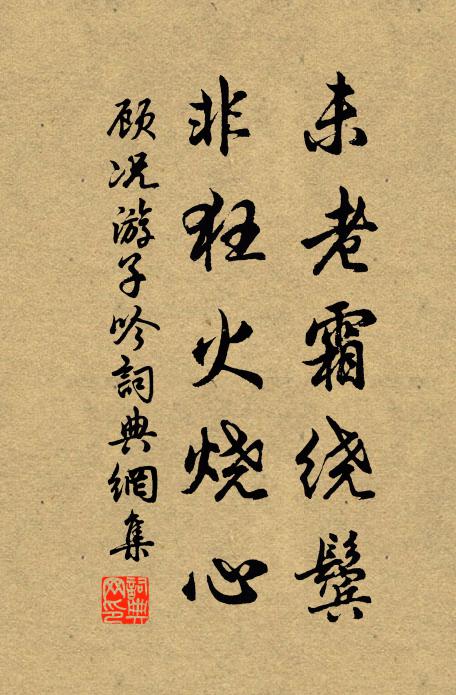 未老霜绕鬓
非狂火烧心
顾况游子吟詞典網集
詞典網印